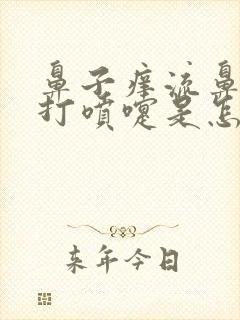 鼻子痒流鼻
打喷嚏是怎
来年今日